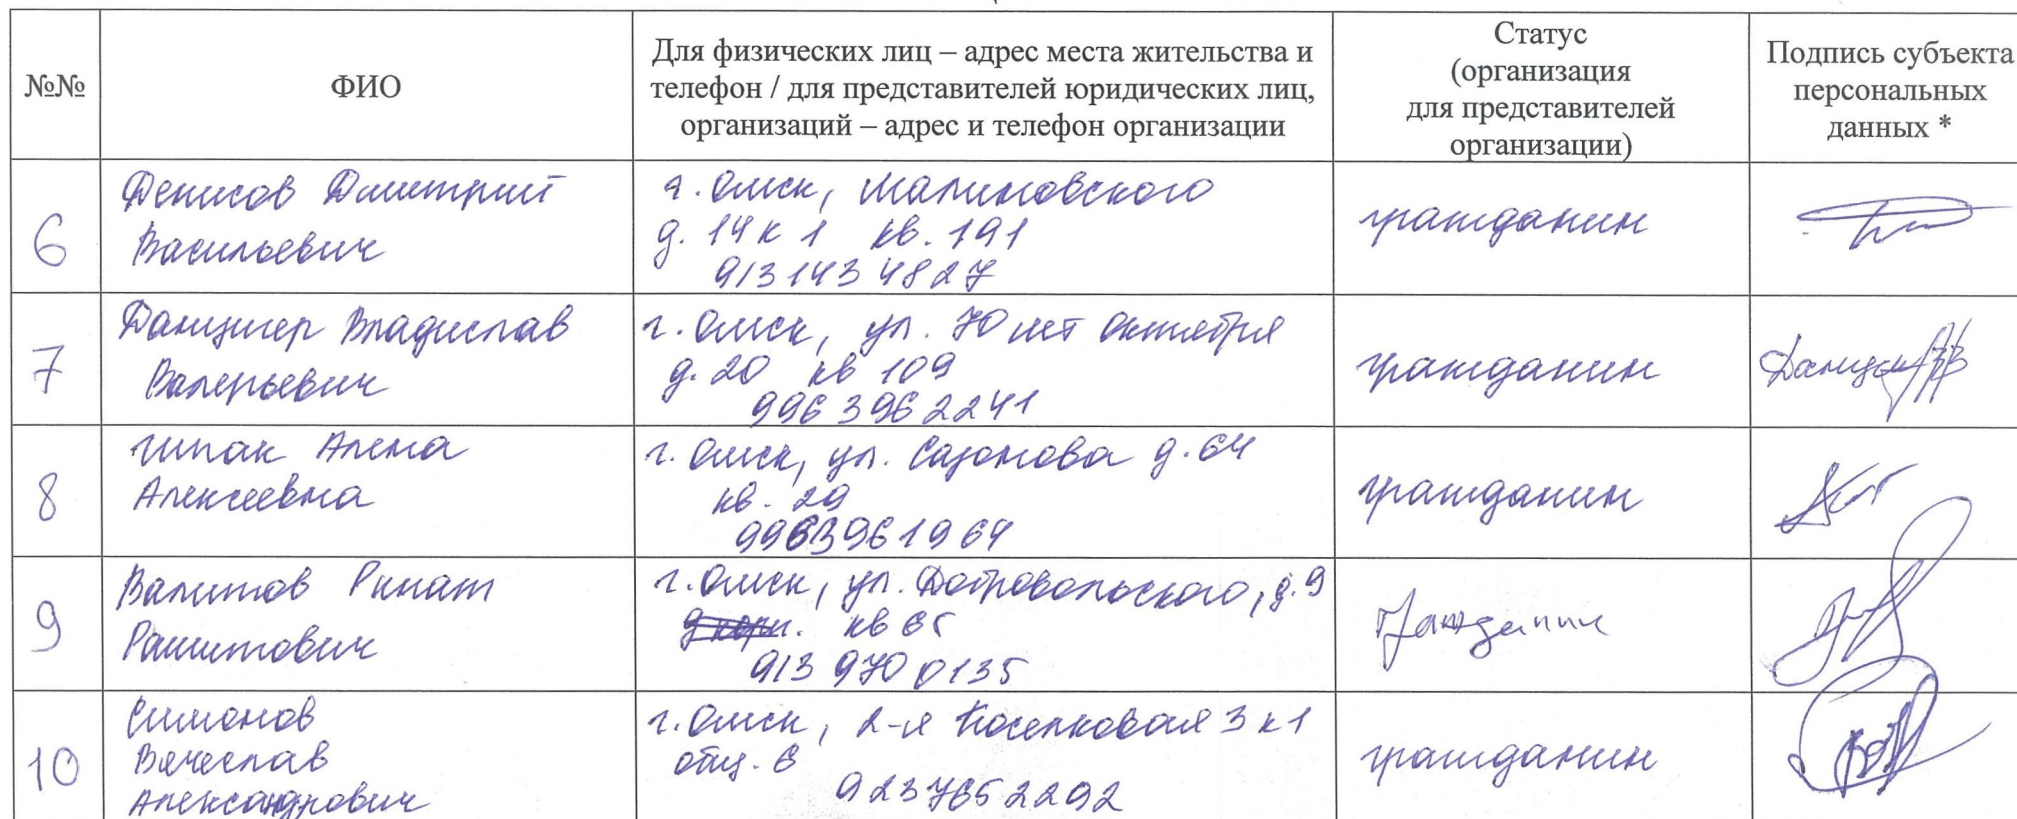 №№
ФИО
Для физических лиц – адрес места жительства и
телефон / для представителей юридических лиц,
организаций – адрес и телефон организации
Статус
(организация
для представителей
организации)
Подпись субъекта
персональных
данных *
6
Денисов Дмитрий
Васильевич
г. Омск, Малиновского
д. 14 к 1 кв. 191
913 143 4827
гражданин
7
Данцигер Владислав
Валерьевич
г. Омск, ул. 70 лет Октября
д. 20 кв 109
996 396 2241
гражданин
8
Шпак Алена
Алексеевна
г. Омск, ул. Сазонова д. 64
кв. 29
996 396 1964
гражданин
9
Валитов Ринат
Рашитович
г. Омск, ул. Добровольского, д. 9
кв 65
913 970 0135
гражданин
10
Симонов
Вячеслав
Александрович
г. Омск, 2-я Поселковая 3 к 1
общ. 6
923 765 2292
гражданин